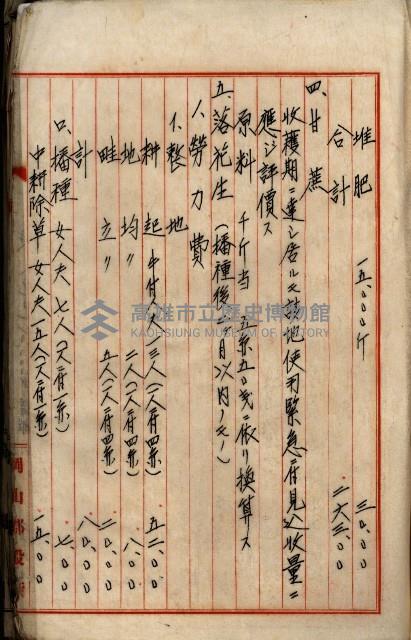 堆肥 一五,〇〇〇斤 三〇,〇〇
合計 二六三,〇〇
四、甘蔗
収穫期ニ達シ居ルモ敷地使用緊急ニ付見込収量ニ
應ジ評價ス
原料 千斤当 五円五〇銭ニ依リ換算ス
五、落花生(播種後 月以内ノモノ)
1、勞力費
イ、整地
耕起 牛付人 三人(一人ニ付四円) 五二,〇〇
地均〃 二人(一人ニ付四円) 八,〇〇
畦立〃 五人(一人ニ付四円) 二〇,〇〇
計 八〇,〇〇
ロ、播種 女人夫 七人(一人ニ付一円) 七,〇〇
中耕除草 女人夫 一五人(一人ニ付一円) 一五,〇〇
岡山郡役所
高雄市立歷史博物館
KAOHSIUNG MUSEUM OF HISTORY